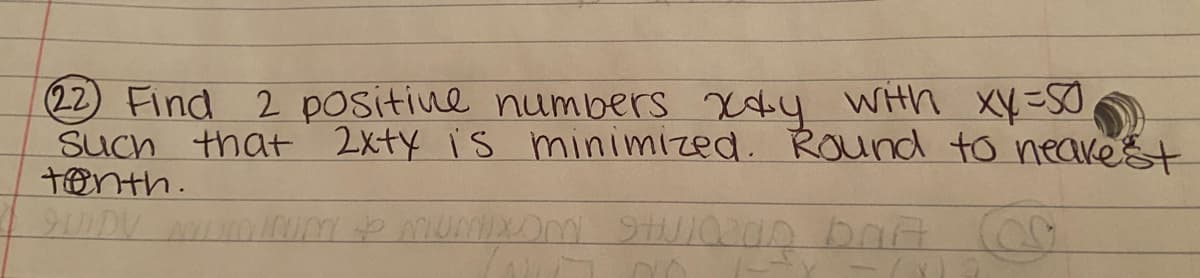 22 Find 2 positive numbers x & y with xy=50
such that 2x+y is minimized. Round to nearest
tenth.